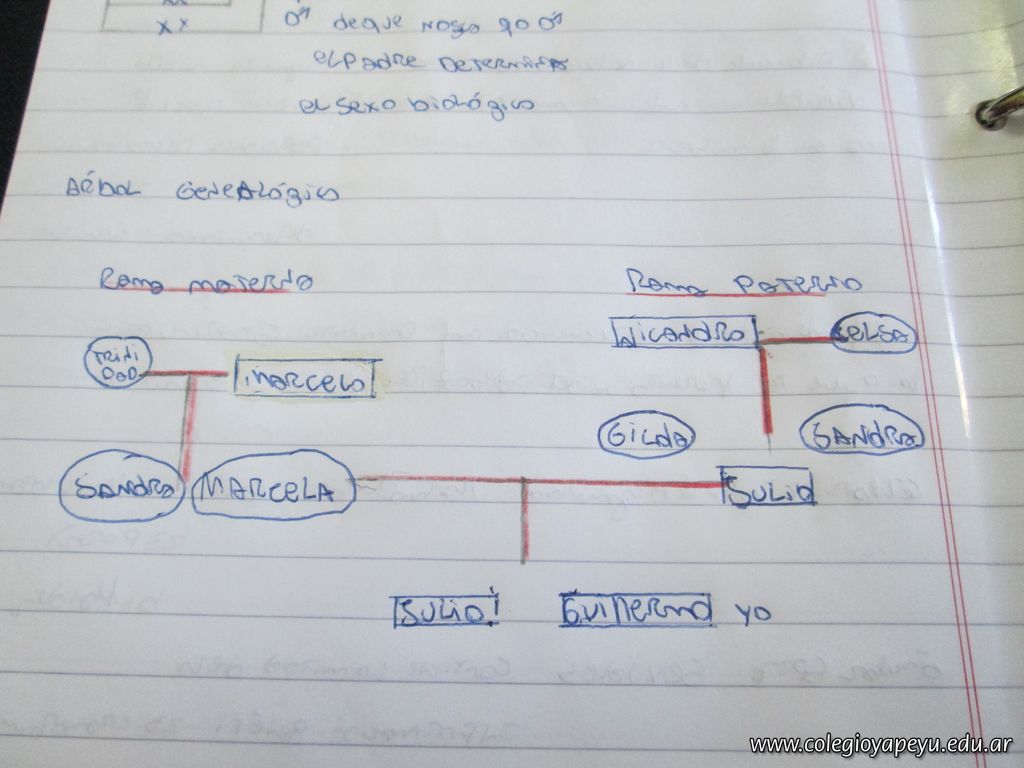 XX
O⃗ de que nosza go O⃗
el padre Determina
el sexo biológico
Arbol Genealógico
Rama materna
Rama paterna
Nicandro
Celsa
Trini
dad
Marcelo
Gilda
Sandra
Sandra
Marcela
Julio
Julio
Guillermo yo
www.colegioyapeyu.edu.ar